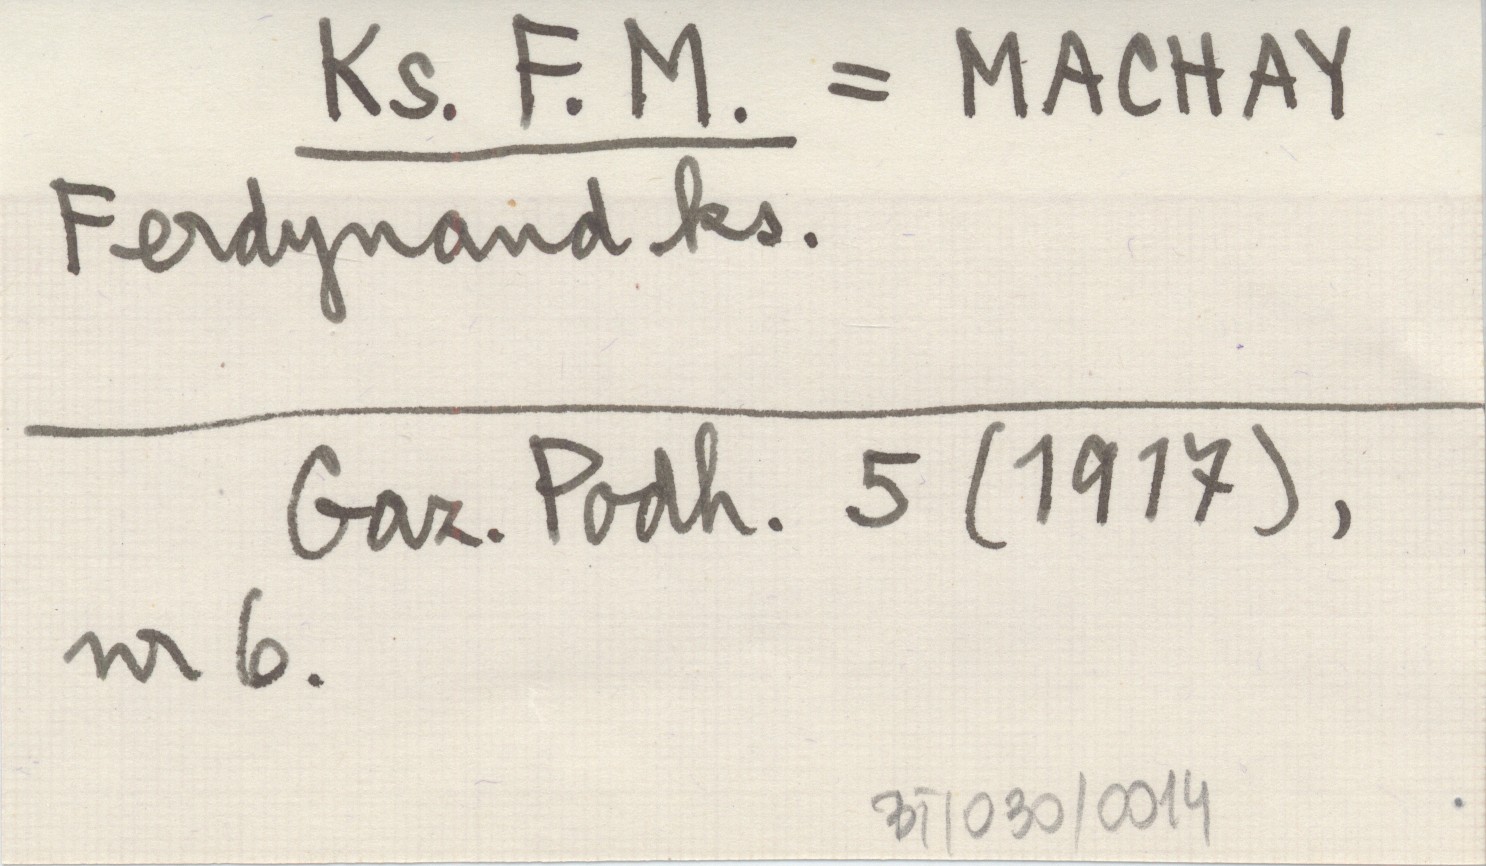 Ks. F. M. = MACHAY
Ferdynand ks.
Gaz. Podh. 5 (1917),
nr 6.
/030/0014